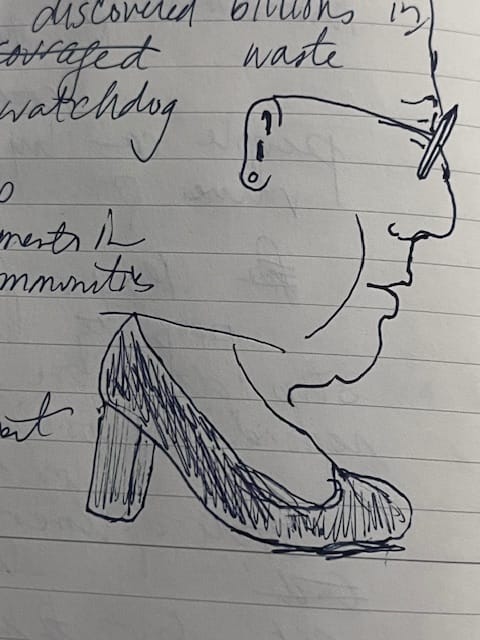 discovered billions in
couraged waste
watchdog
ments IL
mmunities